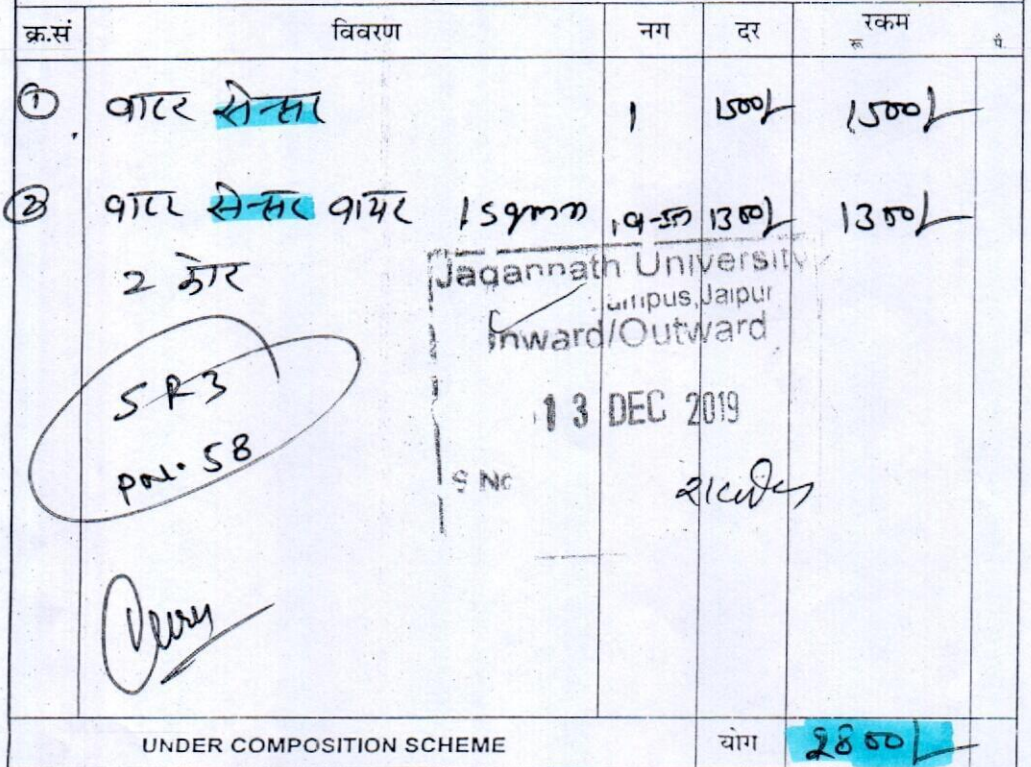 क्र.सं विवरण नग दर रकम
रू. पै.
① वाटर सेन्सर 1 1500/- 1500/-
② वाटर सेन्सर वायर 1 sqmm 1300/- 1300/-
2 कोर
Jagannath University
Campus, Jaipur
Inward/Outward
SR3
13 DEC 2019
58
S No
UNDER COMPOSITION SCHEME योग 2800/-